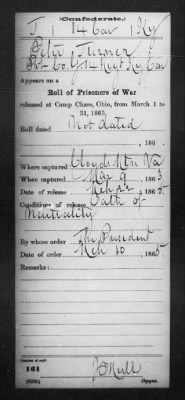 (Confederate.)
J. 1 14 Cav Ky
Peter J. Turner
Pvt Co. G, 14 Regt Ky Cav
Appears on a
Roll of Prisoners of War
released at Camp Chase, Ohio, from March 1 to
31, 1865.
Roll dated
Not dated
, 186 .
Where captured Va
When captured Mar 9, 1863
Date of release , 1865
Conditions of release Oath of
Neutrality
By whose order The President
Date of order Mch 10, 1865
Remarks:
Number of roll:
161
Copyist.